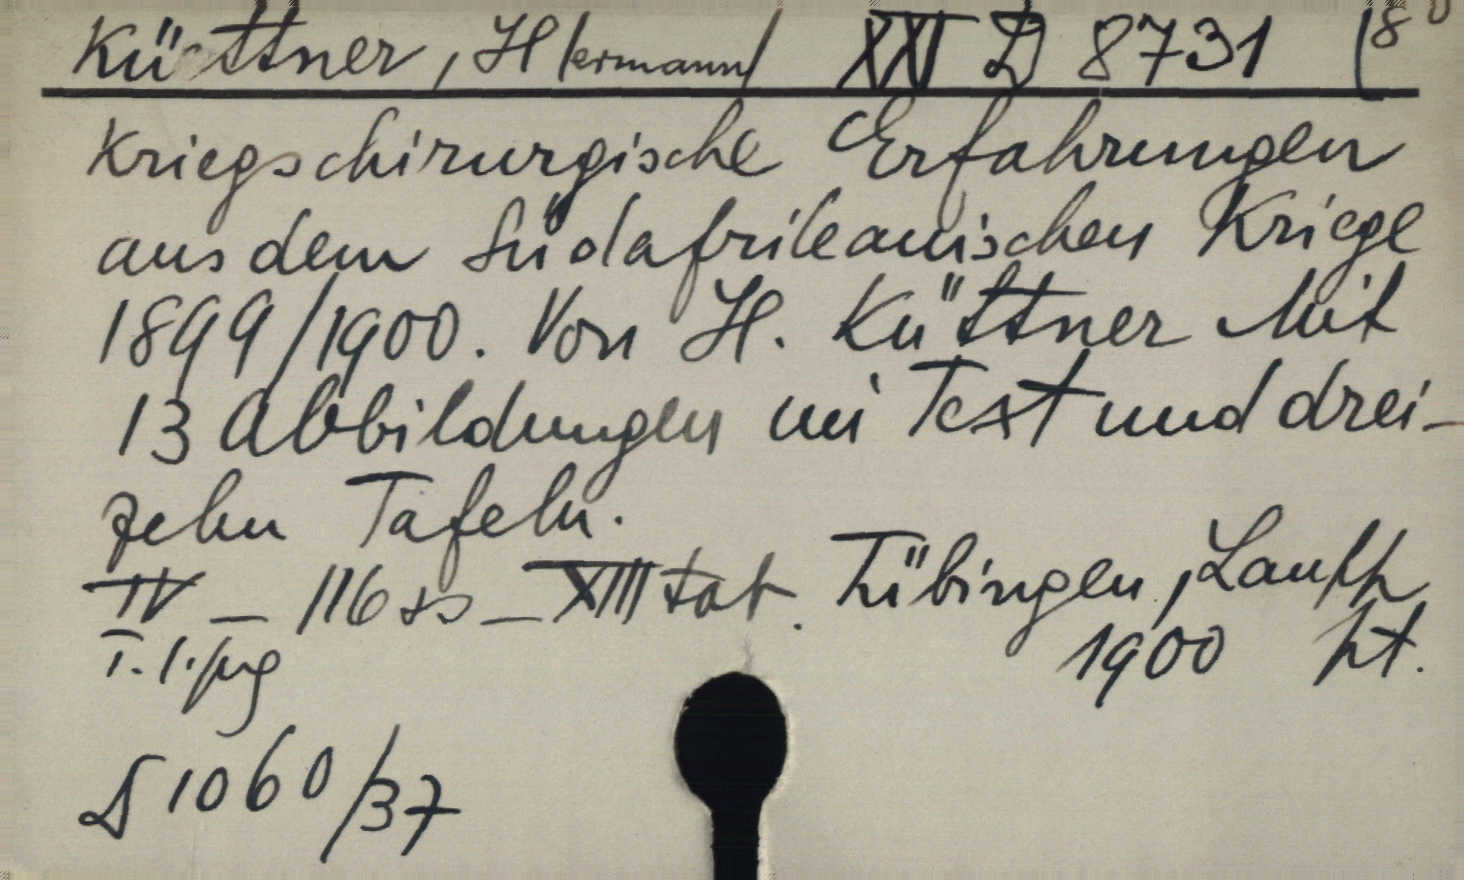 Küttner, H/ermann/ XXI D 8731 (8⁰
Kriegschirurgische Erfahrungen
aus dem Südafrikanischen Kriege
1899/1900. Von H. Küttner Mit
13 Abbildungen im Text und drei-
zehn Tafeln.
IV _ 116 ss _ XIII tab. Tübingen, Laupp
1900 ht.
1060/37